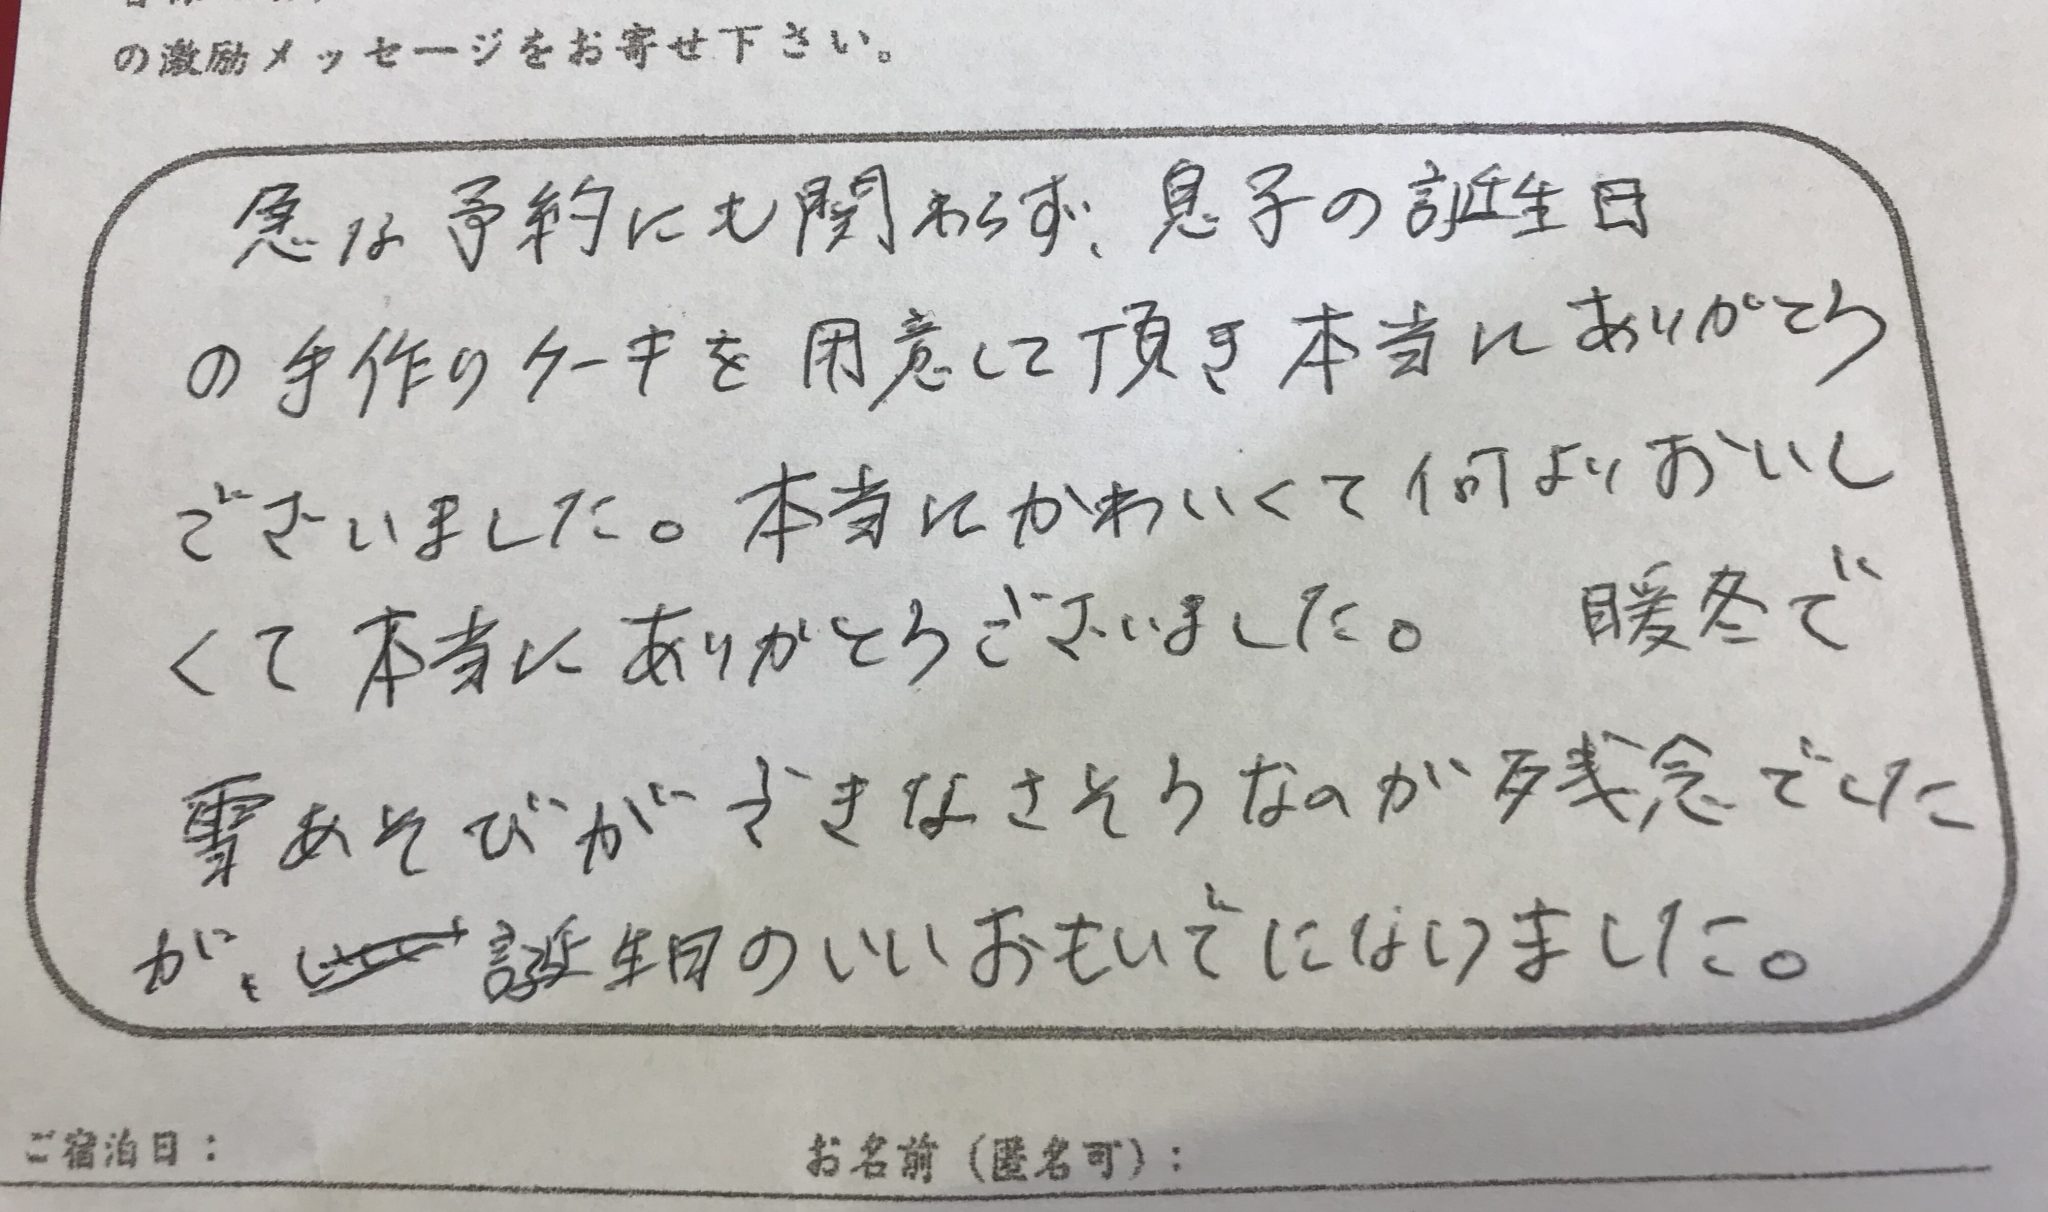 の激励メッセージをお寄せ下さい。
急な予約にも関わらず、息子の誕生日
の手作りケーキを用意して頂き本当にありがとう
ございました。本当にかわいくて何よりおいし
くて本当にありがとうございました。 暖冬で
雪あそびができなさそうなのが残念でした
が、誕生日のいいおもいでになりました。
ご宿泊日： お名前（匿名可）：